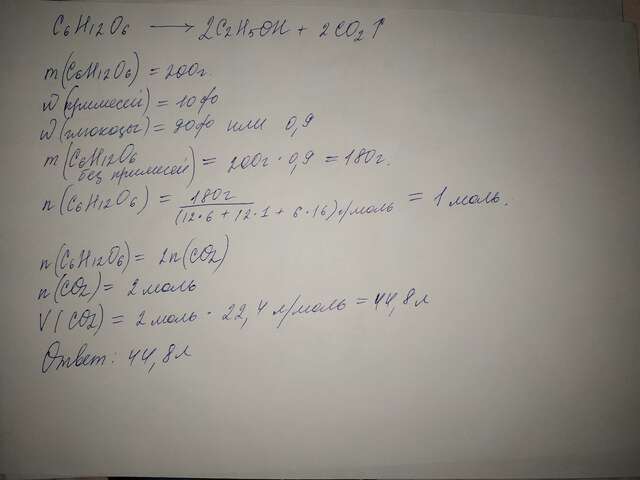 C6H12O6 → 2C2H5OH + 2CO2↑
m(C6H12O6) = 200г.
ω(примесей) = 10%
ω(глюкозы) = 90% или 0,9
m(C6H12O6 без примесей) = 200г · 0,9 = 180г.
n(C6H12O6) = 180г / (12·6 + 12·1 + 6·16) г/моль = 1 моль.
n(C6H12O6) = 2n(CO2)
n(CO2) = 2 моль
V(CO2) = 2 моль · 22,4 л/моль = 44,8 л
Ответ: 44,8 л